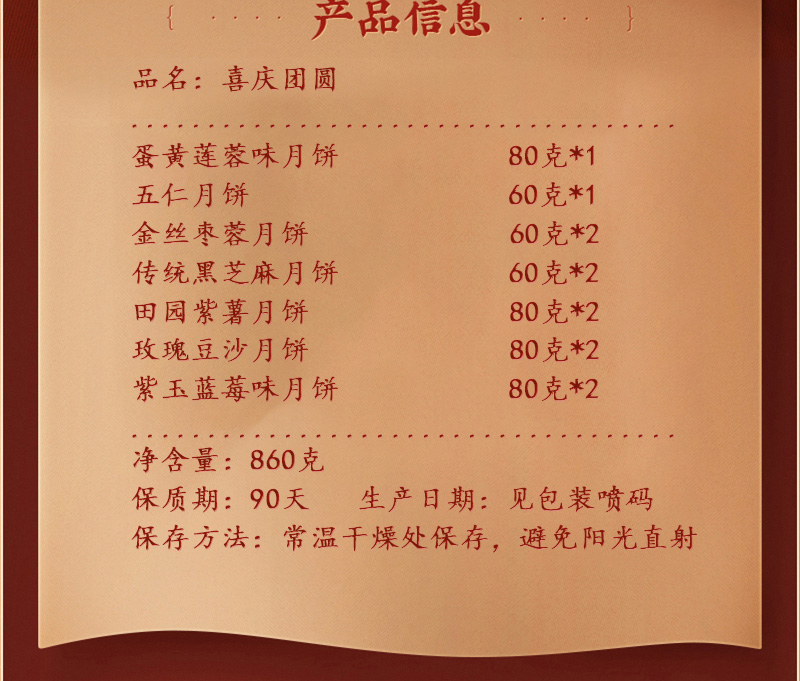 产品信息
品名：喜庆团圆
蛋黄莲蓉味月饼 80克*1
五仁月饼 60克*1
金丝枣蓉月饼 60克*2
传统黑芝麻月饼 60克*2
田园紫薯月饼 80克*2
玫瑰豆沙月饼 80克*2
紫玉蓝莓味月饼 80克*2
净含量：860克
保质期：90天 生产日期：见包装喷码
保存方法：常温干燥处保存，避免阳光直射